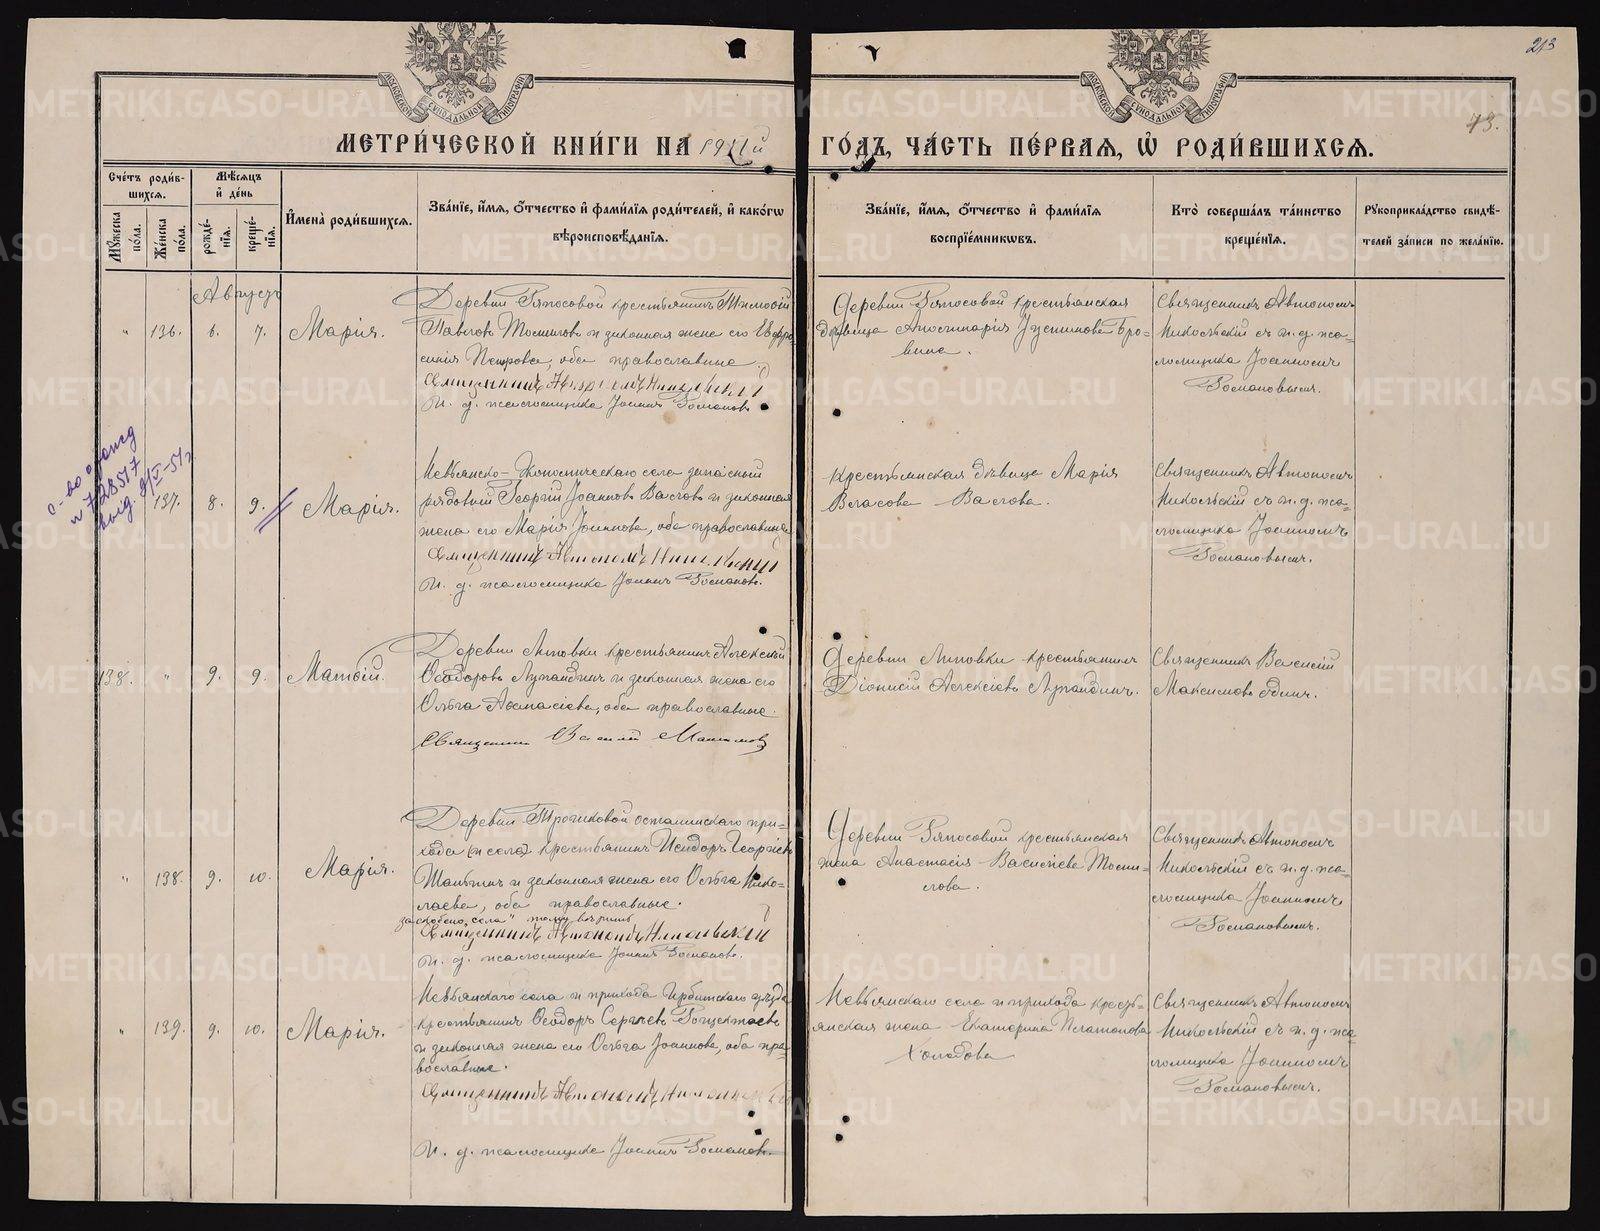 213
73.
МОСКОВСКОЙ СѴНОДАЛЬНОЙ ТИПОГРАФІИ
МОСКОВСКОЙ СѴНОДАЛЬНОЙ ТИПОГРАФІИ
МЕТРИ́ЧЕСКОЙ КНИ́ГИ НА 1911й
ГО́ДЪ, ЧА́СТЬ ПЕ́РВАЯ, Ѡ҆ РОДИ́ВШИХСЯ.
Сче́тъ роди́в-
шихся.
Мѣ́сяцъ
и҆ де́нь
Мꙋ́жеска
по́ла.
Же́нска
по́ла.
рожде́-
нїя.
креще́-
нїя.
И҆мена̀ роди́вшихся.
Зва́нїе, и҆́мя, ѻ҆́тчество и҆ фами́лїя роди́телей, и҆ како́гѡ
вѣроисповѣ́данїя.
Зва́нїе, и҆́мя, ѻ҆́тчество и҆ фами́лїя
воспрїе́мникѡвъ.
Кто̀ соверша́лъ та́инство
креще́нїя.
Рꙋкоприкла́дство свидѣ́-
телей за́писи по жела́нїю.
Августъ
" 136. 6. 7. Марія.
Деревни Ряпосовой крестьянинъ Тимофій
Павловъ Тосмиловъ и законная жена его Евфро
синія Петрова, оба православные.
Священникъ Автономъ Никольскій
И. д. псаломщика Іоаннъ Романовъ
Деревни Ряпосовой крестьянская
дѣвица Аполинарія Іустинова Бро-
вина.
Священникъ Автономъ
Никольскій съ и. д. пса=
ломщика Іоанномъ
Романовымъ.
137. 8. 9. Марія.
Невьянско-Экономическаго села запасный
рядовый Георгій Іоанновъ Васговъ и законная
жена его Марія Іоаннова, оба православные
Священникъ Автономъ Никольскій
И. д. псаломщика Іоаннъ Романовъ.
Крестьянская дѣвица Марія
Власова Васгова.
Священникъ Автономъ
Никольскій съ и. д. пса=
ломщика Іоанномъ
Романовымъ.
138. " 9. 9. Матѳій.
Деревни Липовки крестьянинъ Алексѣй
Ѳеодоровъ Лупандинъ и законная жена его
Ольга Аѳанасіева, оба православные.
Священникъ Василій Максимовъ
Деревни Липовки крестьянинъ
Діонисій Алексіевъ Лупандинъ.
Священникъ Василій
Максимовъ одинъ.
" 138. 9. 10. Марія.
Деревни Трошковой осталинскаго при-
хода (и села) крестьянинъ Исидоръ Георгіевъ
и законная жена его Ольга Нико-
лаева, оба православные.
заскоблено „села" тому вѣрить
Священникъ Автономъ Никольскій
И. д. псаломщика Іоаннъ Романовъ.
Деревни Ряпосовой крестьянская
жена Анастасія Василіева Тосми-
лова.
Священникъ Автономъ
Никольскій съ и. д. пса=
ломщика Іоанномъ
Романовымъ.
" 139. 9. 10. Марія.
Невьянскаго села и прихода Ирбитскаго уѣзда
крестьянинъ Ѳеодоръ Сергіевъ
и законная жена его Ольга Іоаннова, оба пра-
вославные.
Священникъ Автономъ Никольскій
И. д. псаломщика Іоаннъ Романовъ.
Невьянскаго села и прихода кресть-
янская жена Екатерина Платонова
Холабова
Священникъ Автономъ
Никольскій съ и. д. пса
ломщика Іоанномъ
Романовымъ.
METRIKI.GASO-URAL.RU